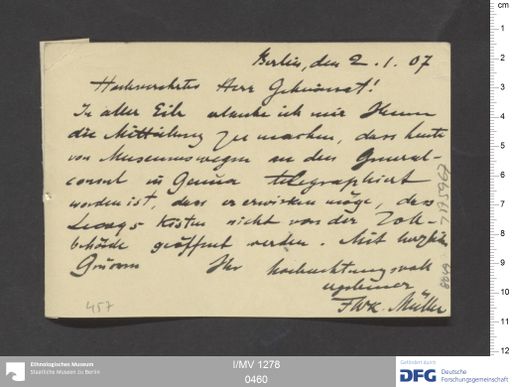 Berlin, den 2.1.07
Hochverehrter Herr Geheimrat!
In aller Eile erlaube ich mir Ihnen
die Mitteilung zu machen, dass heute
von Museumswegen an den General-
consul in Genua telegraphiert
worden ist, dass er erwirken möge, dass
Lecoqs Kisten nicht von der Zoll-
behörde geöffnet werden. Mit herzlichen
Grüssen Ihr hochachtungsvoll
ergebener
FWK. Müller
457
I/MV 1278
0460
Ethnologisches Museum
Staatliche Museen zu Berlin
Gefördert durch
DFG Deutsche
Forschungsgemeinschaft
cm
1
2
3
4
5
6
7
8
9
10
11
12